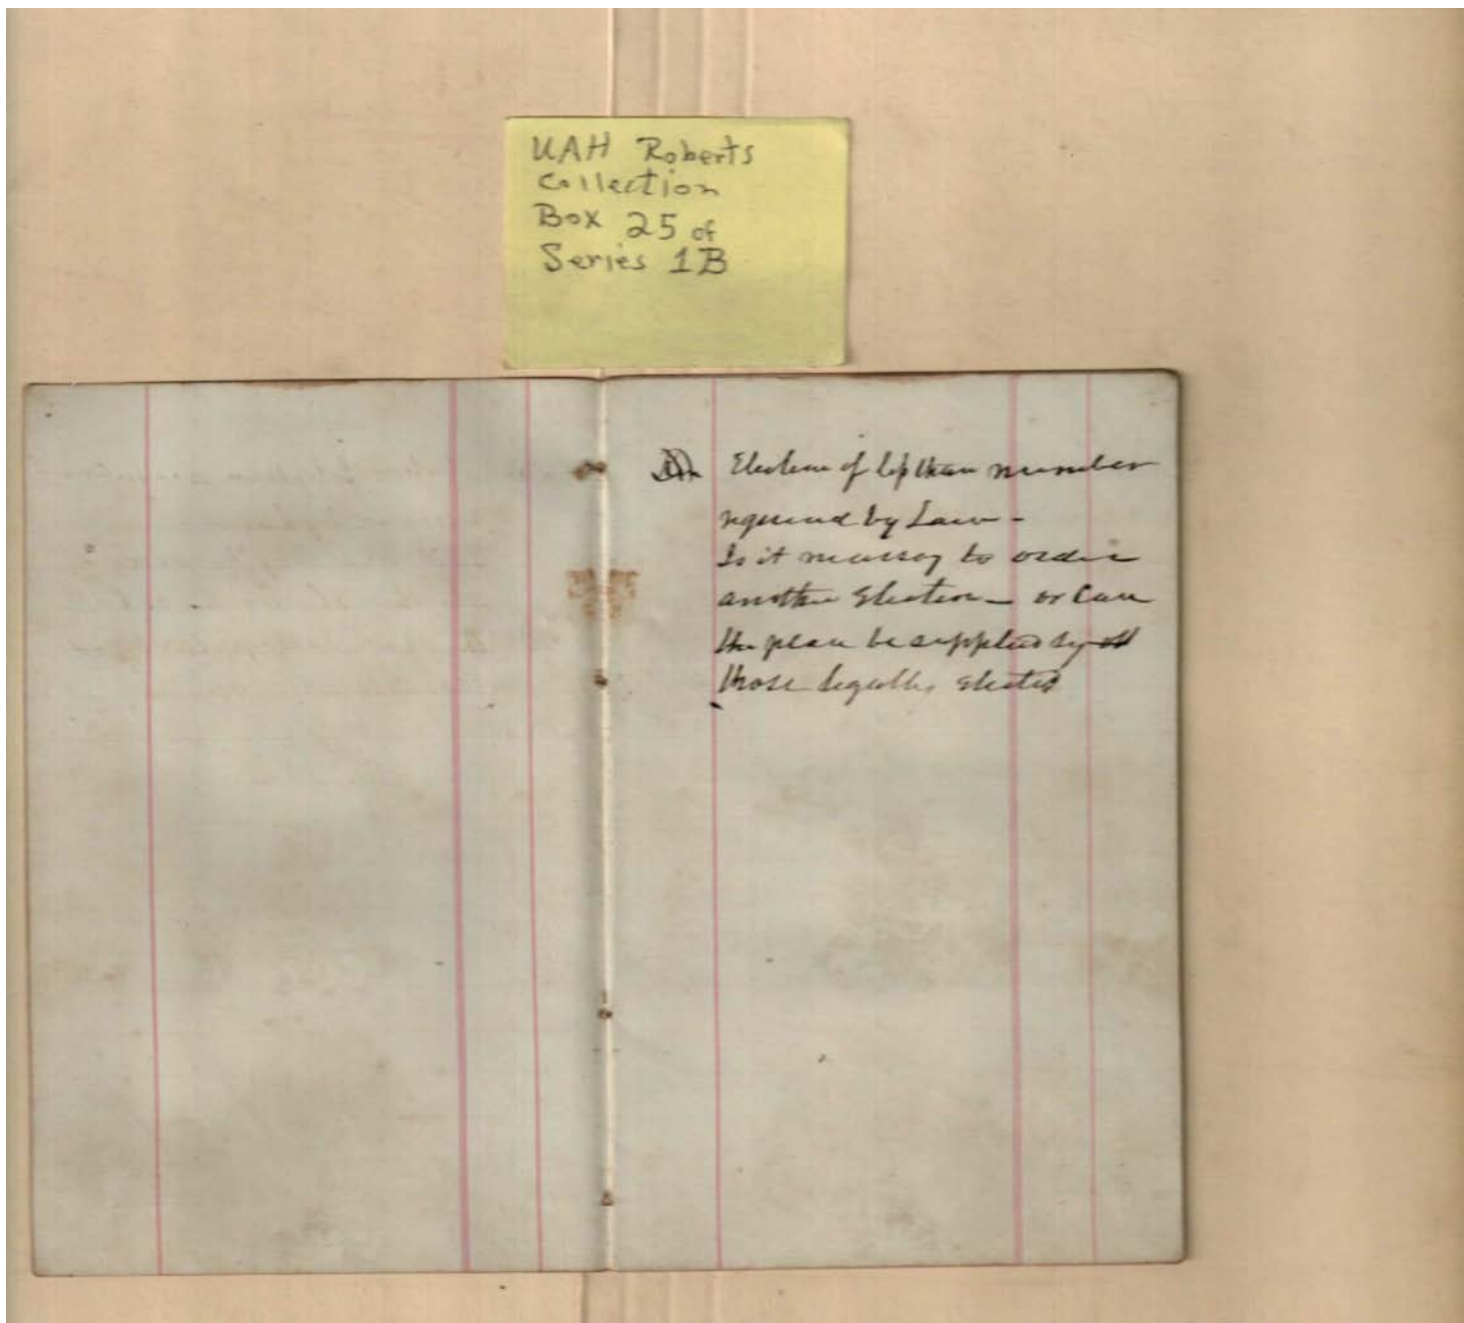 UAH Roberts
Collection
Box 25 of
Series 1B
Election of less than number
required by Law -
Is it necessary to order
another Election - or Can
the place be supplied by
those legally elected